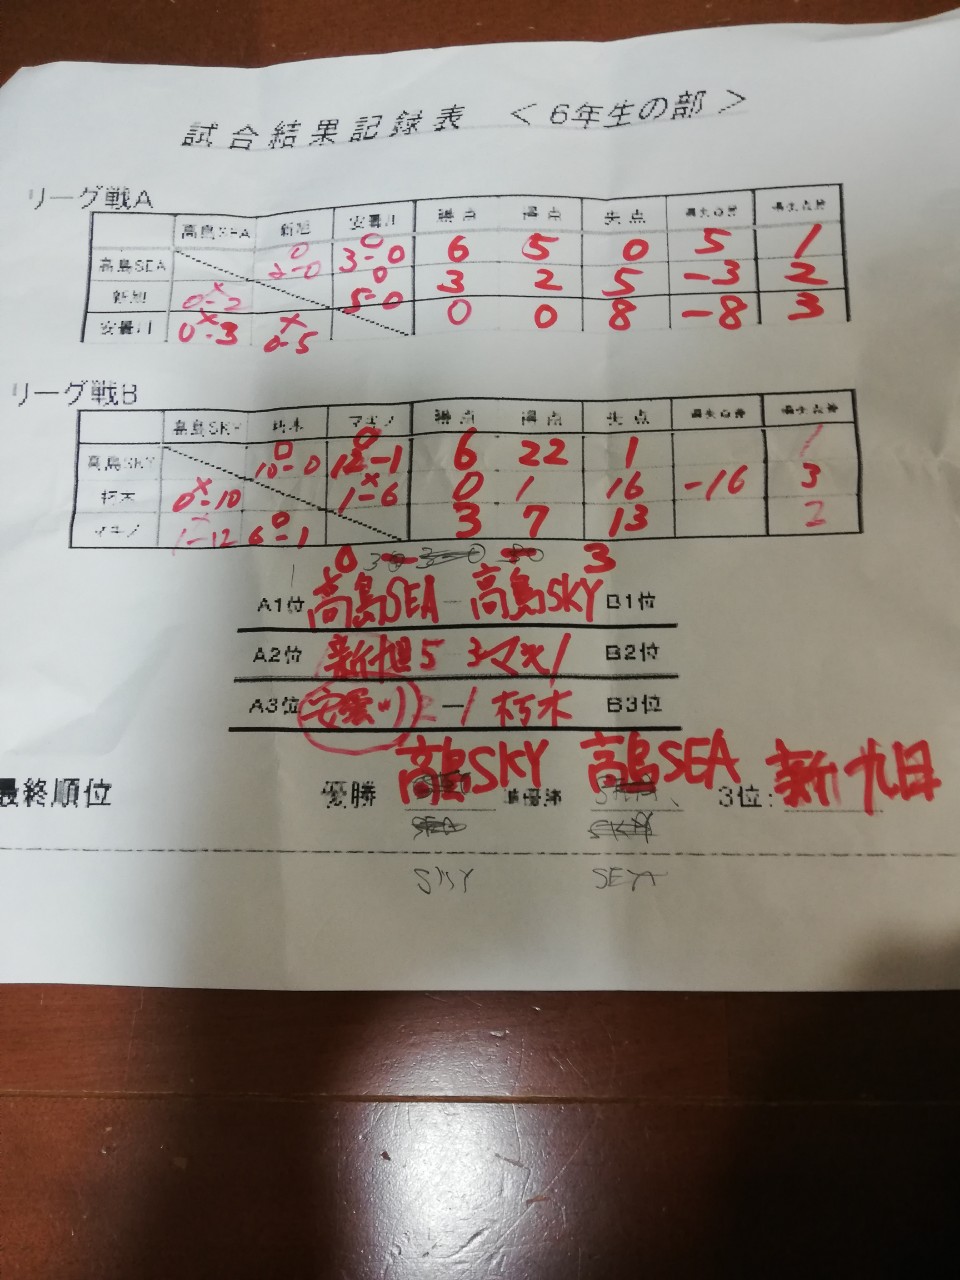 試合結果記録表 <6年生の部>
リーグ戦A
高島SEA 新旭 安曇川 勝点 得点 失点
高島SEA ○ 2-0 ○ 3-0 6 5 0 5 1
新旭 × 0-2 ○ 5-0 3 2 5 -3 2
安曇川 × 0-3 × 0-5 0 0 8 -8 3
リーグ戦B
高島SKY 朽木 マキノ 勝点 得点 失点
高島SKY ○ 10-0 ○ 12-1 6 22 1 1
朽木 × 0-10 × 1-6 0 1 16 -16 3
マキノ × 1-12 ○ 6-1 3 7 13 2
0 - 3
A1位 高島SEA - 高島SKY B1位
A2位 新旭 5 3 マキノ B2位
A3位 安曇川 2-1 朽木 B3位
高島SKY 高島SEA 新旭
最終順位 優勝 準優勝 3位:
SKY SEA